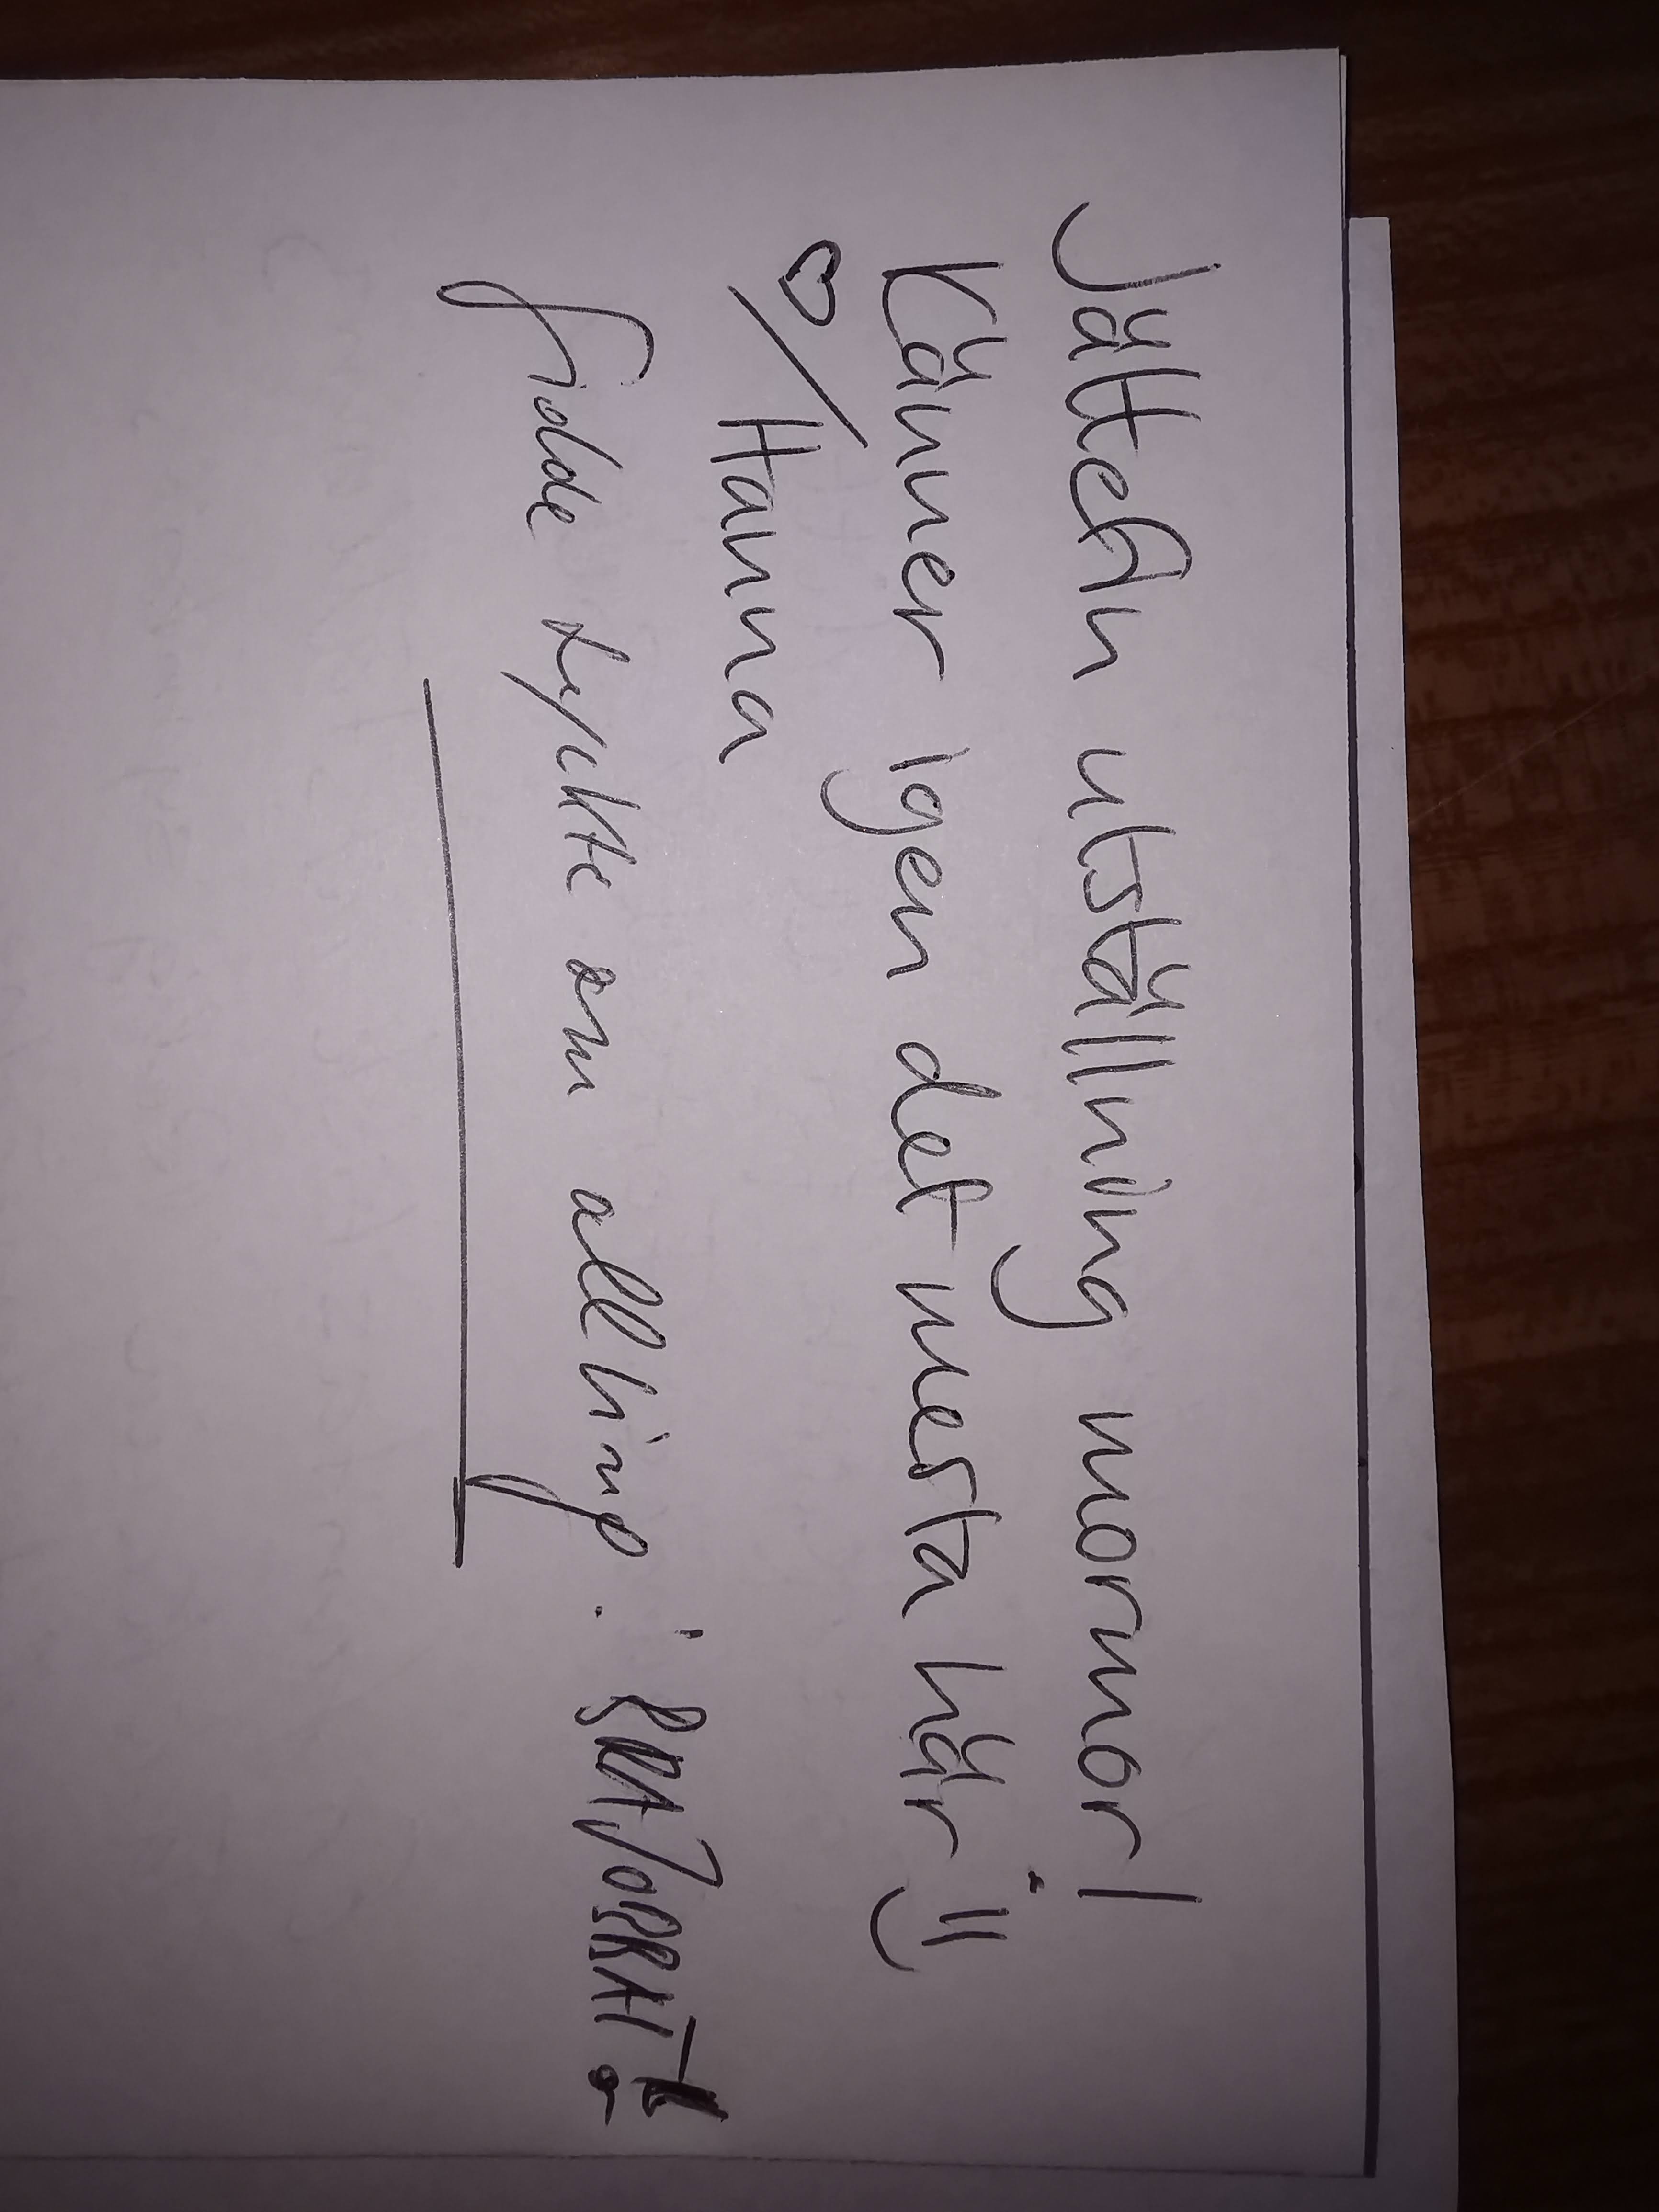 Jättefin utställning mormor!
Känner igen det mesta här :)
♡/Hanna
tyckte om allting! BRA JOBBAT!